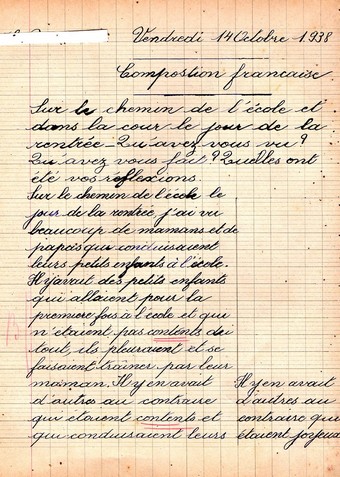 Vendredi 14 Octobre 1938
Compostion francaise
Sur le chemin de l'école et
dans la cour le jour de la
rentrée - Qu'avez vous vu ?
Qu'avez vous fait ? Quelles ont
été vos reflexions.
Sur le chemin de l'école le
jour de la rentrée, j'ai vu
beaucoup de mamans et de
papas qui conduisaient
leurs petits enfants à l'école.
Il y avait des petits enfants
qui allaient pour la
première fois à l'école et qui
n'étaient pas contents du
tout, ils pleuraient et se
faisaient trainer par leur
maman. Il y en avait
d'autres au contraire
qui étaient contents et
qui conduisaient leurs
Il y en avait
d'autres au
contraire qui
étaient joyeux